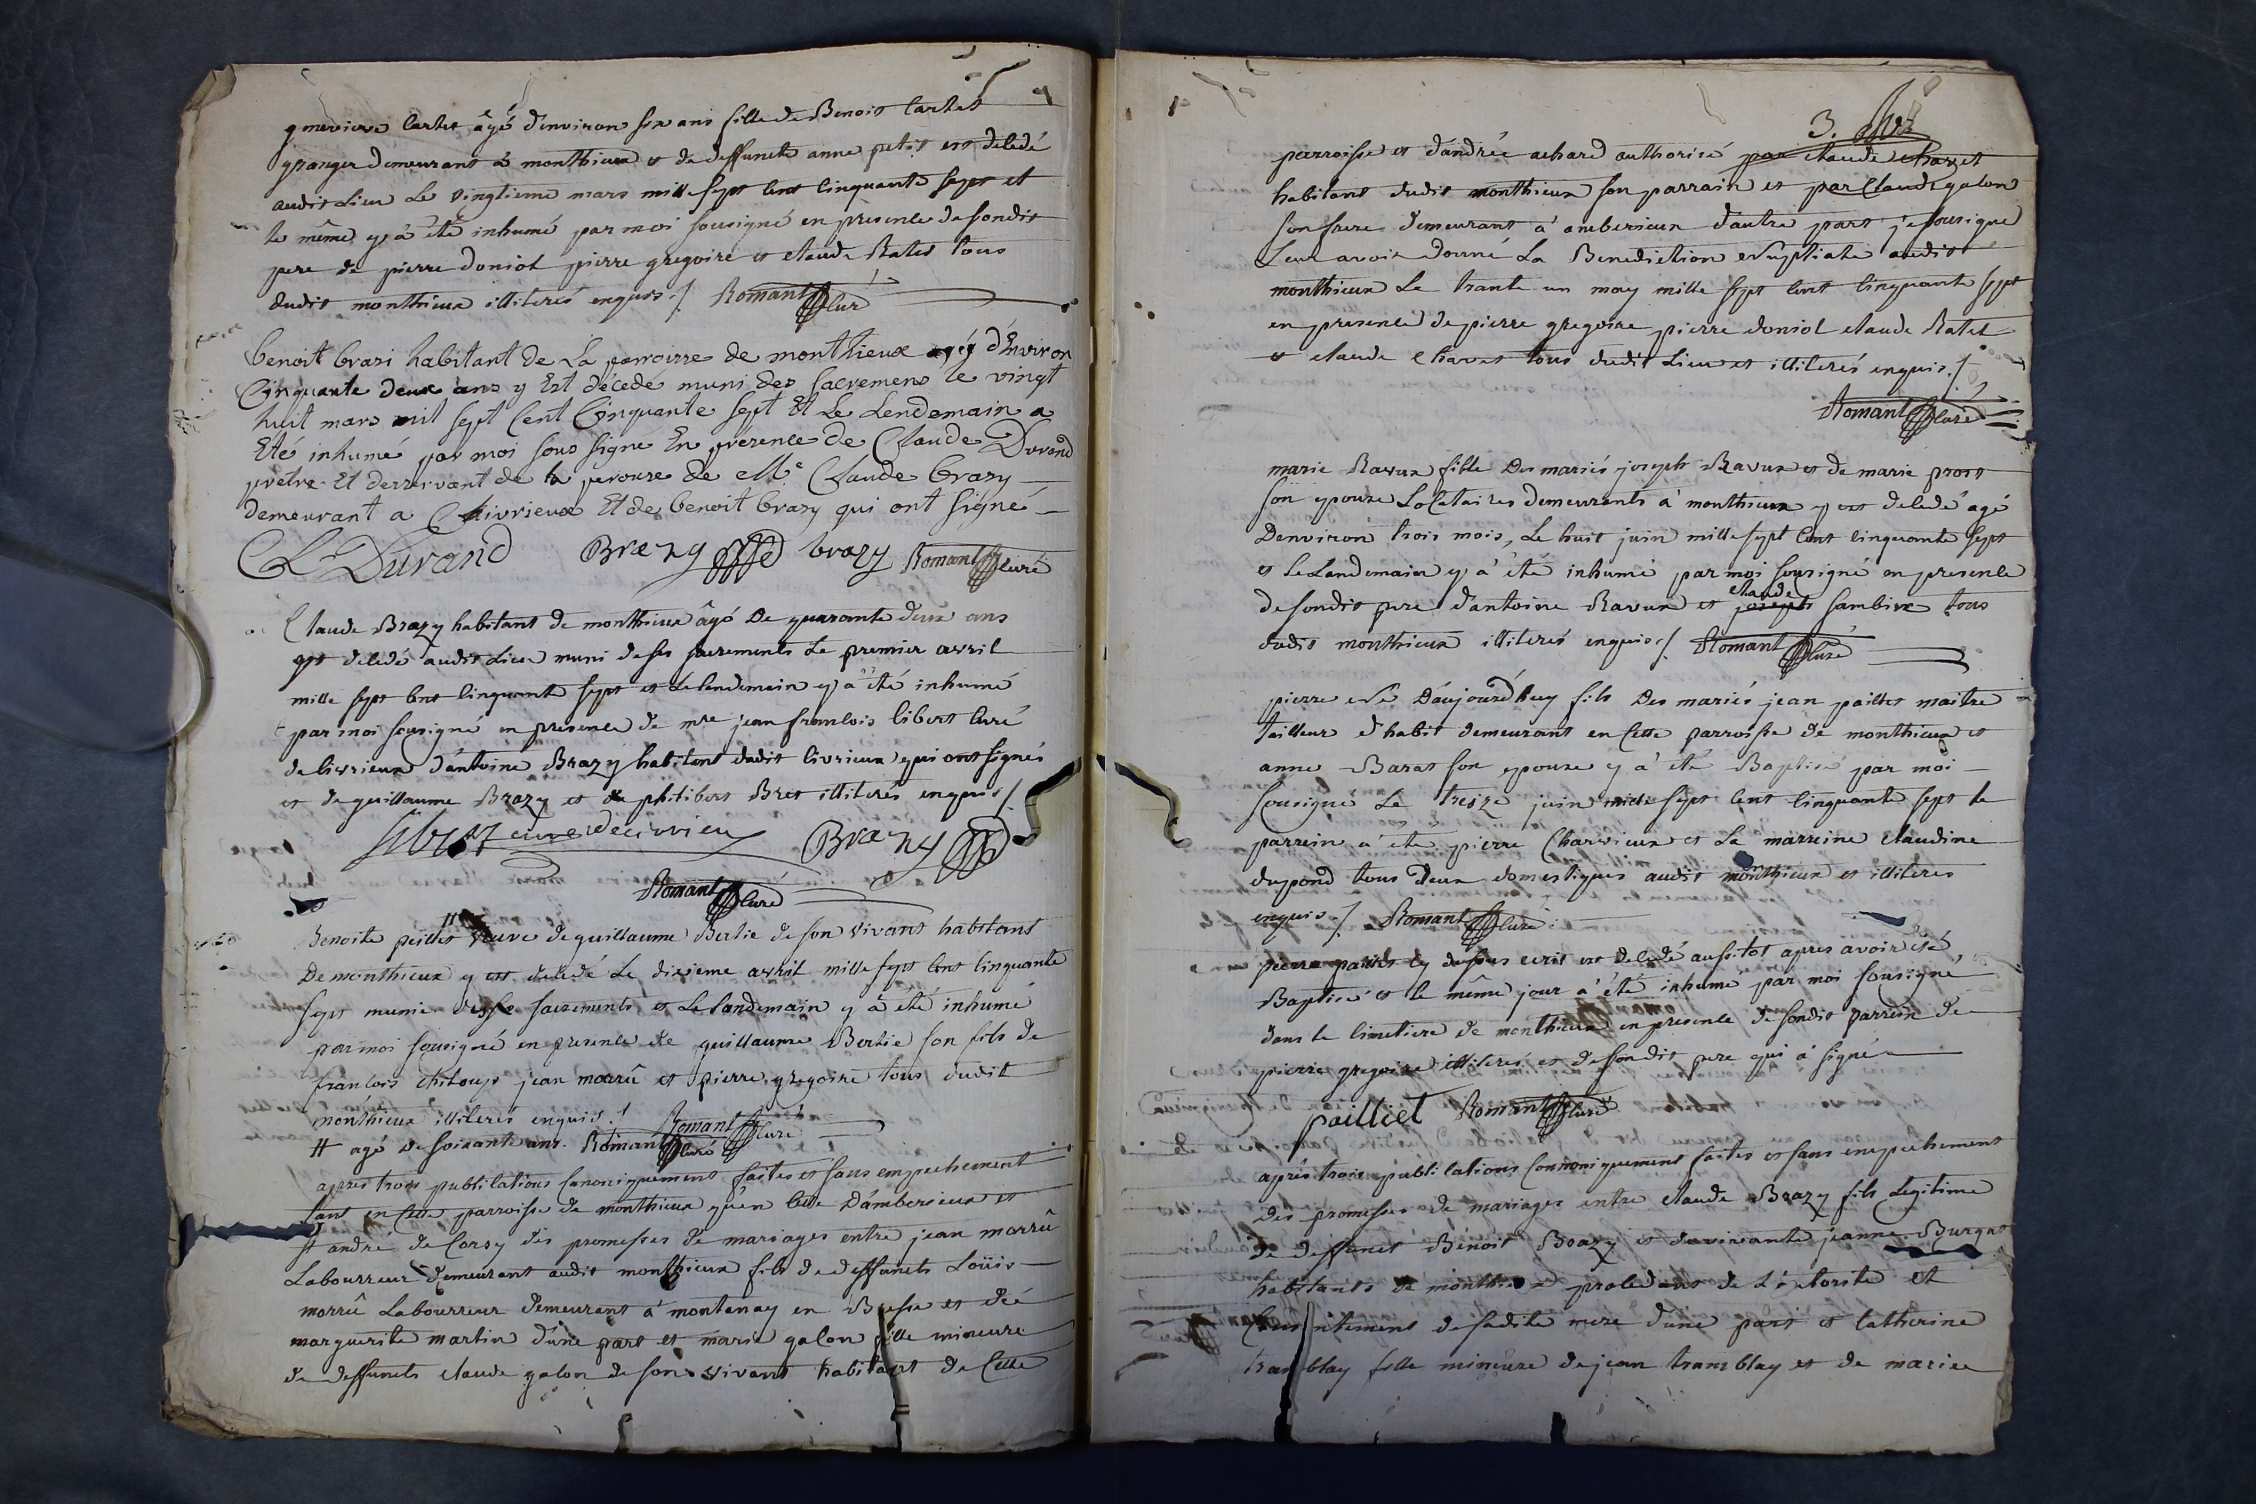 genevieve Cartet âgé d'environ six ans fille de Benoit Cartet
granger demeurant à monthieux et de deffuncte anne petit est decedé
audit Lieu Le vingtieme mars mille sept cent cinquante sept et
le même y à été inhumé par moi sousigné en presence de sondit
pere de pierre doniol pierre gregoire et claude Ratet tous
dudit monthieux illiterés enquis ./. Romant Curé
benoit brazi habitant de La parroisse de monthieux agé d'Environ
Cinquante deux ans y Est décedé muni des sacremens le vingt
huit mars mil sept Cent Cinquante sept Et Le Lendemain a
Eté inhumé par moi sous signé En presence de Claude Durand
prêtre Et desservant de la perouse de Mr. Claude brazy
demeurant a Civrieux Et de benoit brazy qui ont signé
CL Durand Brazy brazy Romant Curé
Claude Brazy habitant de monthieux âgé De quarante deux ans
est decedé audit Lieu muni de ses sacrements Le premier avril
mille sept cent cinquante sept et Le lendemain y à été inhumé
par moi sousigné en presence de mre jean francois libert curé
de civrieux d'antoine Brazy habitant dudit civrieux qui ont signés
et de guillaume Brazy et de philibert Bret illiterés enquis ./.
libert curé de civrieu Brazy
Romant Curé
Benoite peillet # veuve de guillaume Bertie de son vivant habitant
De monthieux y est decedé Le dixieme avril mille sept cent cinquante
sept munie de ses sacrements et Le landemain y à été inhumé
par moi sousigné en presence de guillaume Bertie son fils de
francois chiloup jean morrû et pierre gregoire tous dudit
monthieux illiterés enquis ./. Romant Curé
# agé de soixante ans. Romant Curé
apres trois publications canoniquement faites et sans empechement
tant en cette parroisse de monthieux qu'en celle D'amberieux et
st andré de Corsy des promesses de mariages entre jean morrû
Labourreur demeurant audit monthieux fils de deffuncts Loüis
morrû Labourreur demeurant à montanay en Bresse et de
marguerite martin d'une part et marie galon fille mineure
de deffuncts claude galon de son vivant habitant de Cette
3.
parroisse et d'andrée achard authorisé par claude charvet
habitant dudit monthieux son parrain et par Claude galon
son frere demeurant à amberieux d'autre part je sousigné
Leur avoir donné La Benediction Nuptiale audit
monthieux Le trante un may mille sept cent cinquante sept
en presence de pierre gregoire pierre doniol claude Ratet
et claude charvet tous dudit Lieu et illiterés enquis ./.
Romant Curé
marie Ravux fille Des mariés joseph Ravux et de marie prost
son epouse Locataires demeurants à monthieux y est decedé âgé
Denviron trois mois, Le huit juin mille sept cent cinquante sept
et Le Landemain y à été inhumé par moi sousigné en presence
de sondit pere d'antoine Ravux et claude joseph sambire tous
dudit monthieux illiterés enquis ./. Romant Curé
pierre Né Daujourd'huy fils Des mariés jean paillet maitre
tailleur d'habit demeurant en Cette parroisse de monthieux et
anne Barat son epouse y à été Baptisé par moi
sousigné Le treize juin mille sept cent cinquante sept le
parrein à été pierre Charvieux et La marreine claudine
dupond tous deux domestiques audit monthieux et illiteres
enquis ./. Romant Curé
pierre paillet cy dessus ecrit est decedé aussitot apres avoir été
Baptisé et le même jour a été inhumé par moi sousigné
dans le cimetiere de monthieux en presence de sondit parrein de
pierre gregoire illiterés et de sondit pere qui à signé
pailliet Romant Curé
aprés trois publications canoniquement faites et sans empechement
des promesses de mariages entre claude Brazy fils Legitime
de deffunct Benoit Brazy et de vivante jeanne Burgat
habitants de monthieux procedant de L'autorité et
Consentement de sadite mere d'une part et Catherine
tramblay fille mineure de jean tramblay et de marie